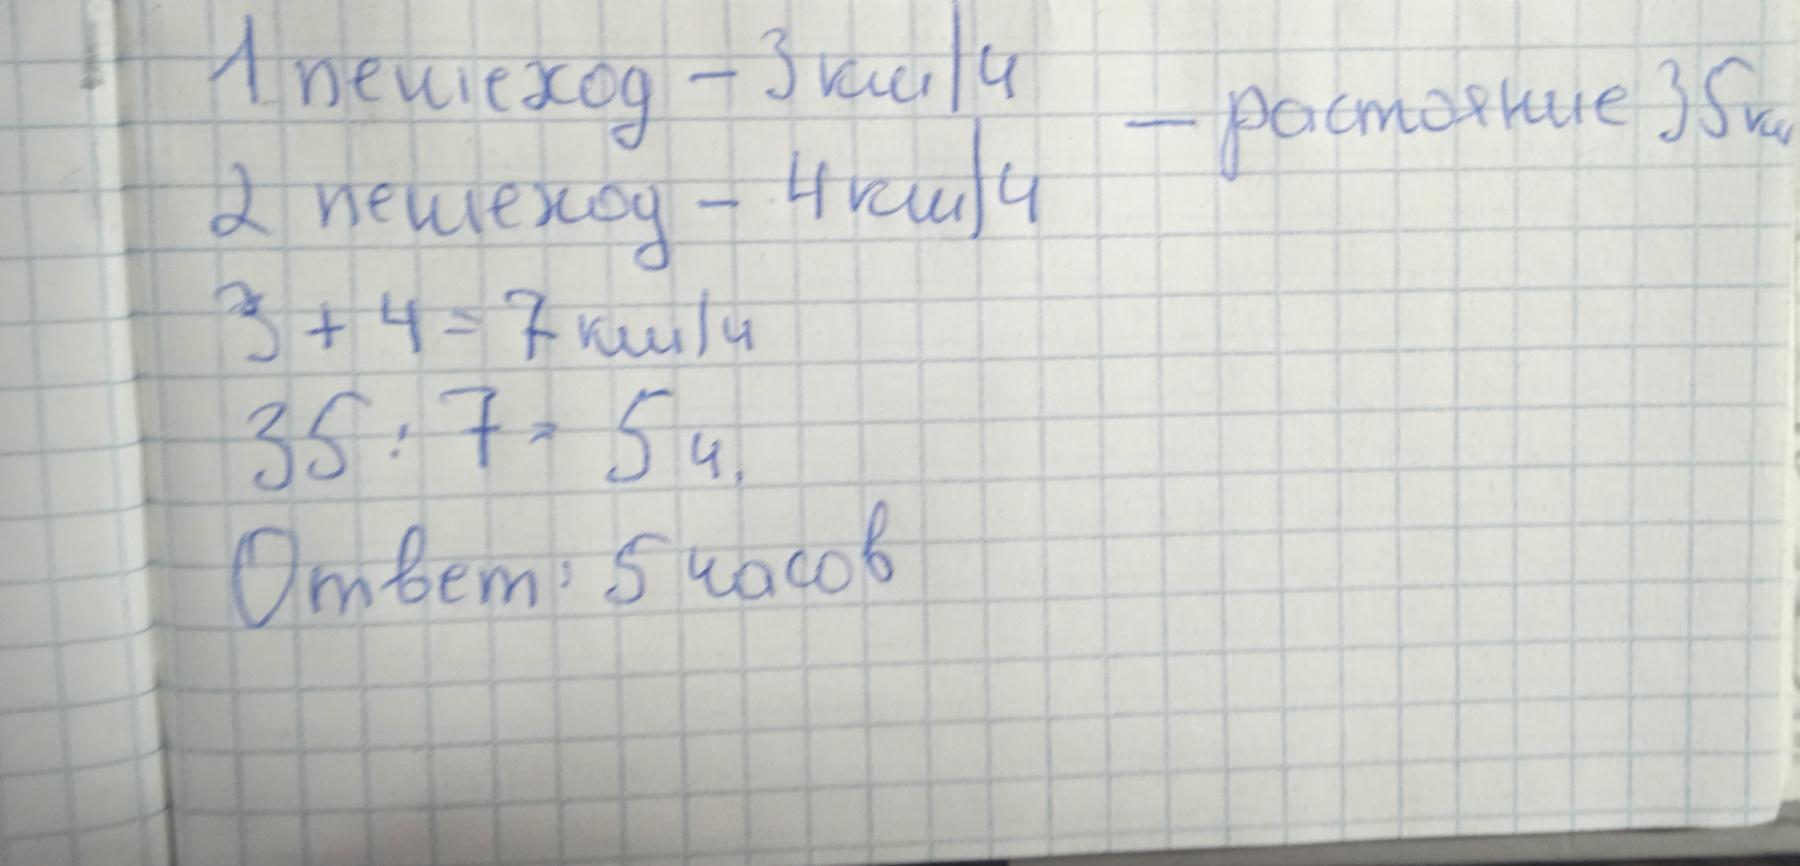 1 пешеход - 3 км/ч
- растояние 35 км
2 пешеход - 4 км/ч
3 + 4 = 7 км/ч
35 : 7 = 5 ч.
Ответ: 5 часов